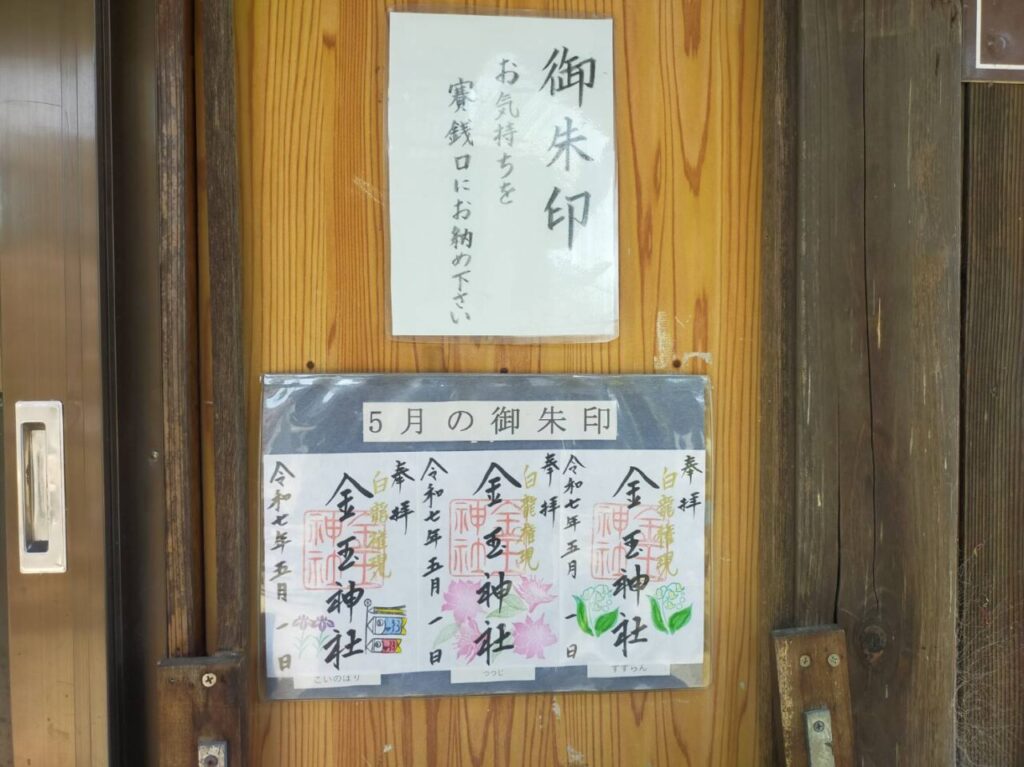 御朱印
お気持ちを
賽銭口にお納め下さい
5月の御朱印
奉拝
白龍権現
金玉神社
令和七年五月一日
すずらん
奉拝
白龍権現
金玉神社
令和七年五月一日
つつじ
奉拝
白龍権現
金玉神社
令和七年五月一日
こいのぼり